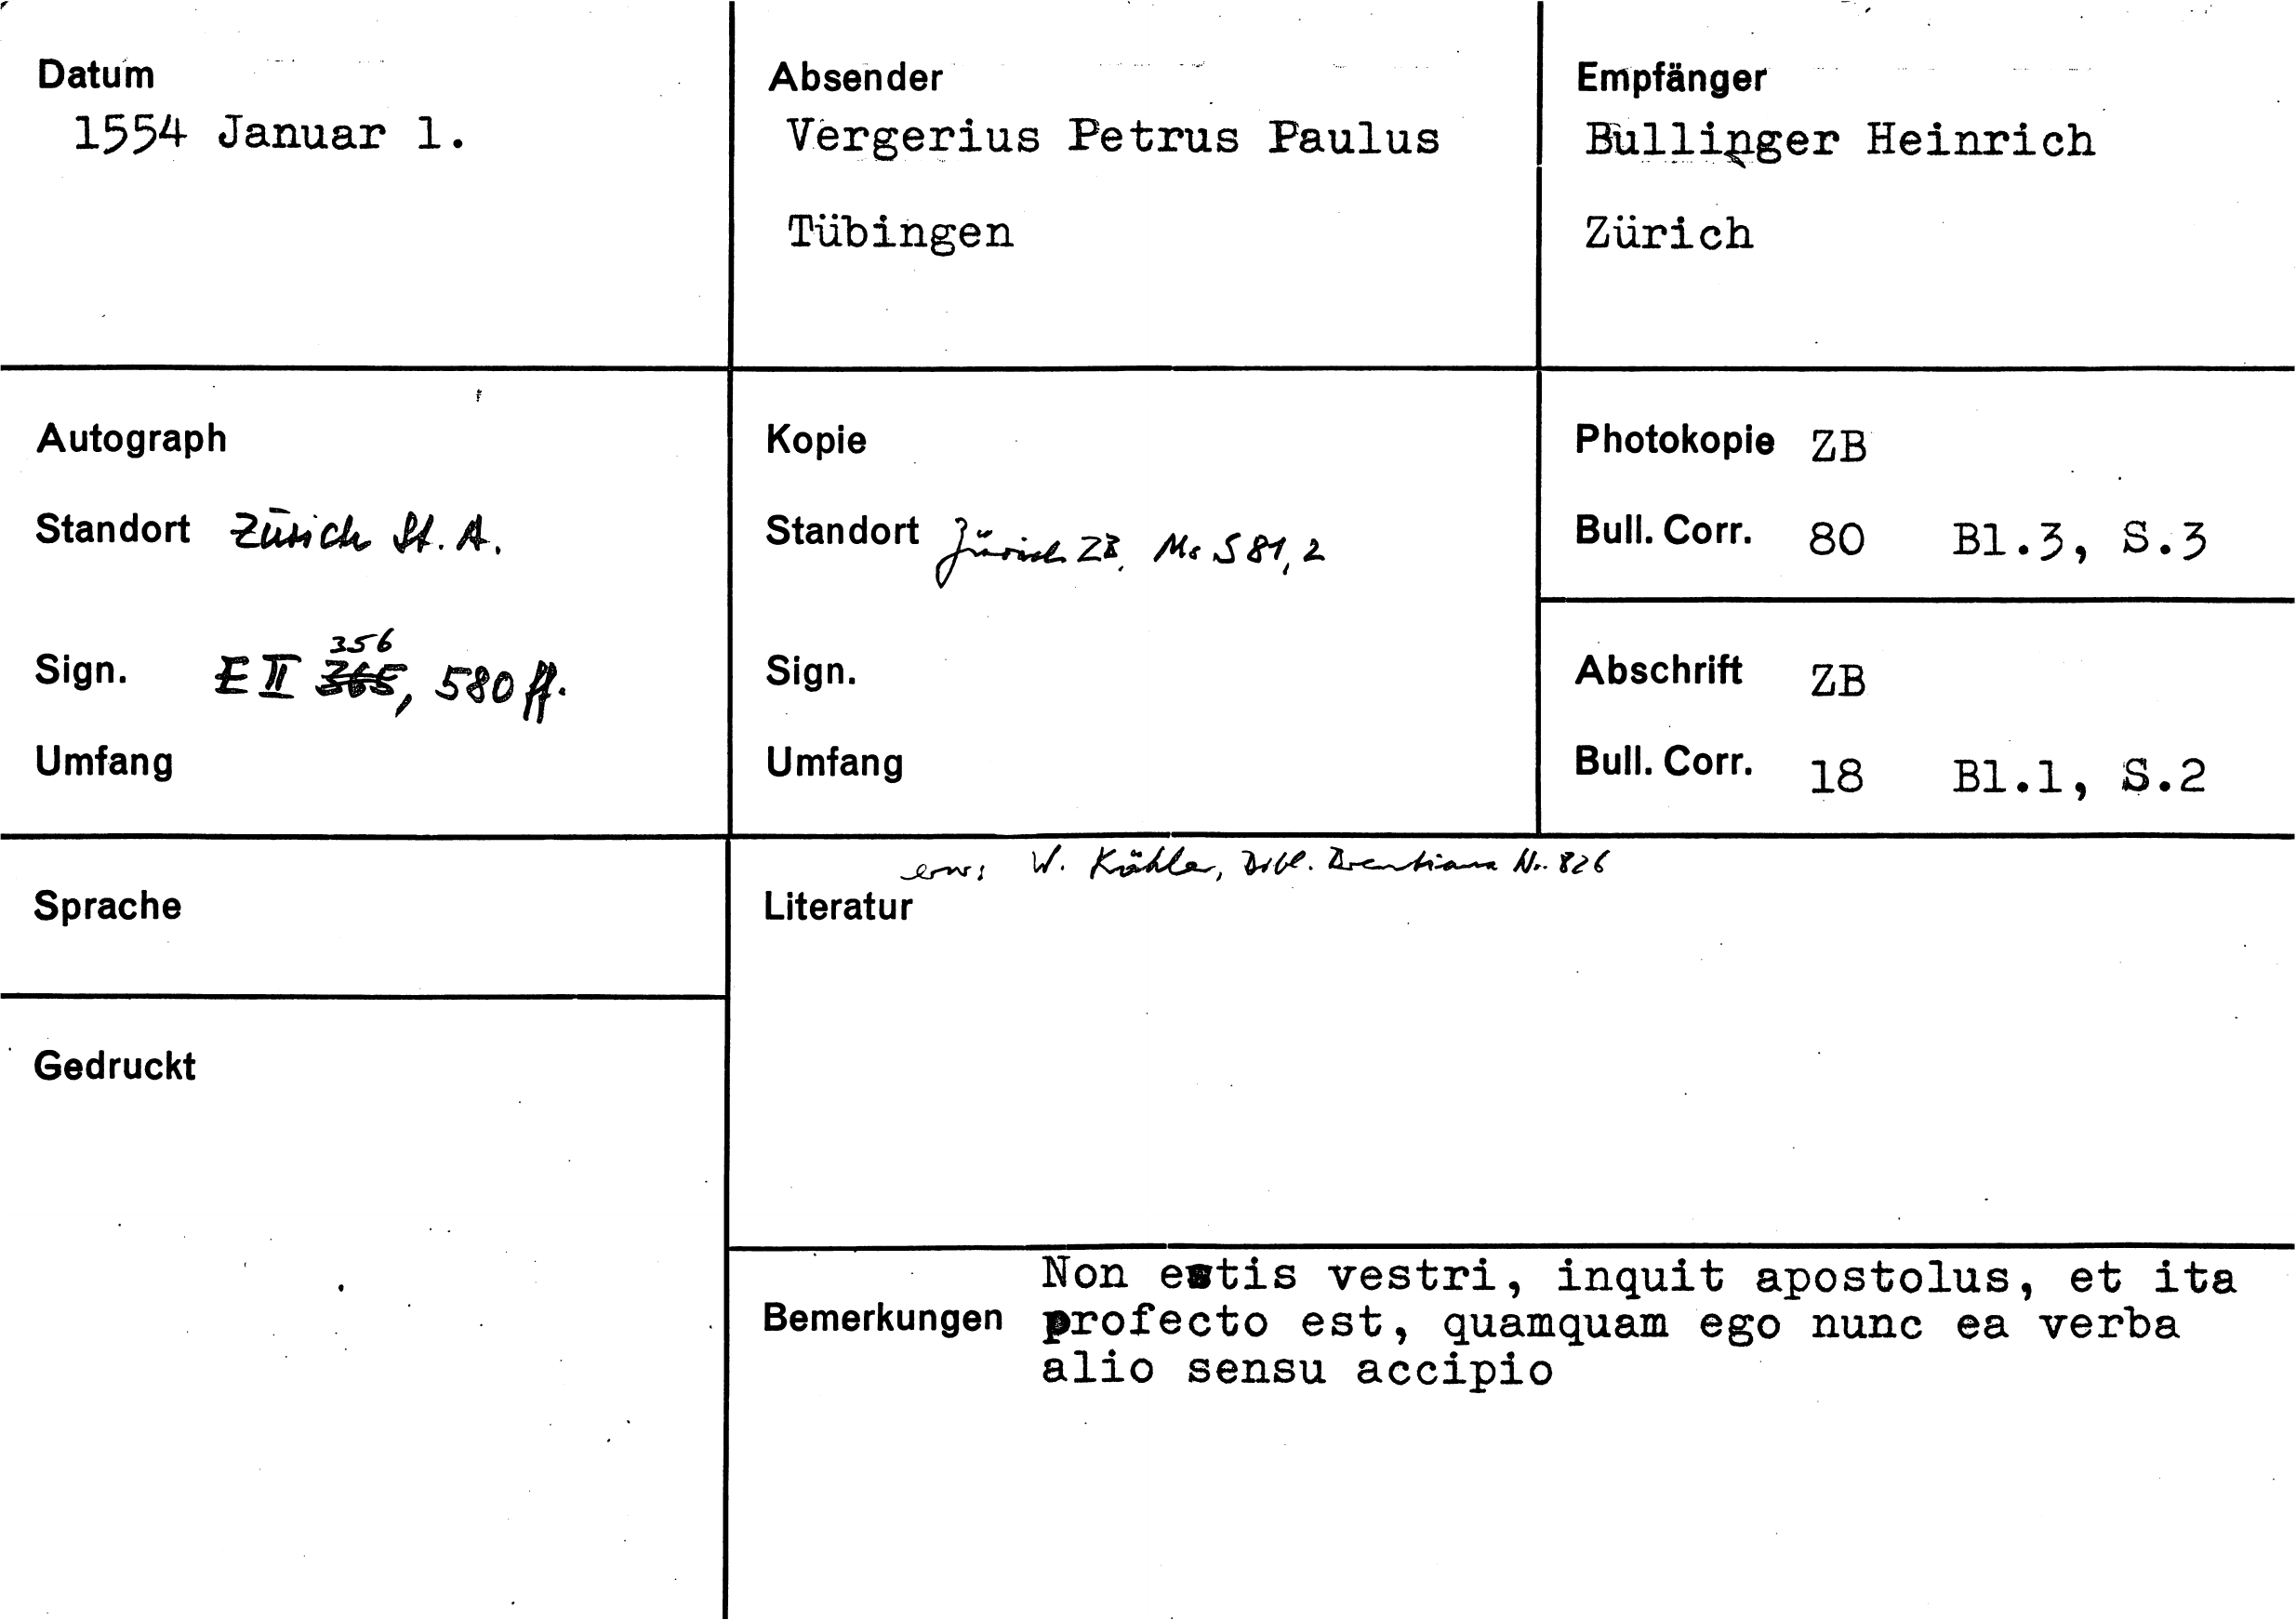 Datum
1554 Januar 1.
Absender
Vergerius Petrus Paulus
Tübingen
Empfänger
Bullinger Heinrich
Zürich
Autograph
Standort Zürich St. A.
356
Sign. E II 365, 580 ff.
Umfang
Kopie
Standort Zürich ZB, Ms S 81, 2
Sign.
Umfang
Photokopie ZB
Bull. Corr. 80 Bl.3, S.3
Abschrift ZB
Bull. Corr. 18 Bl.1, S.2
Sprache
erw: W. Köhler, Bibl. Brentiana Nr. 826
Literatur
Gedruckt
Non estis vestri, inquit apostolus, et ita
Bemerkungen profecto est, quamquam ego nunc ea verba
alio sensu accipio